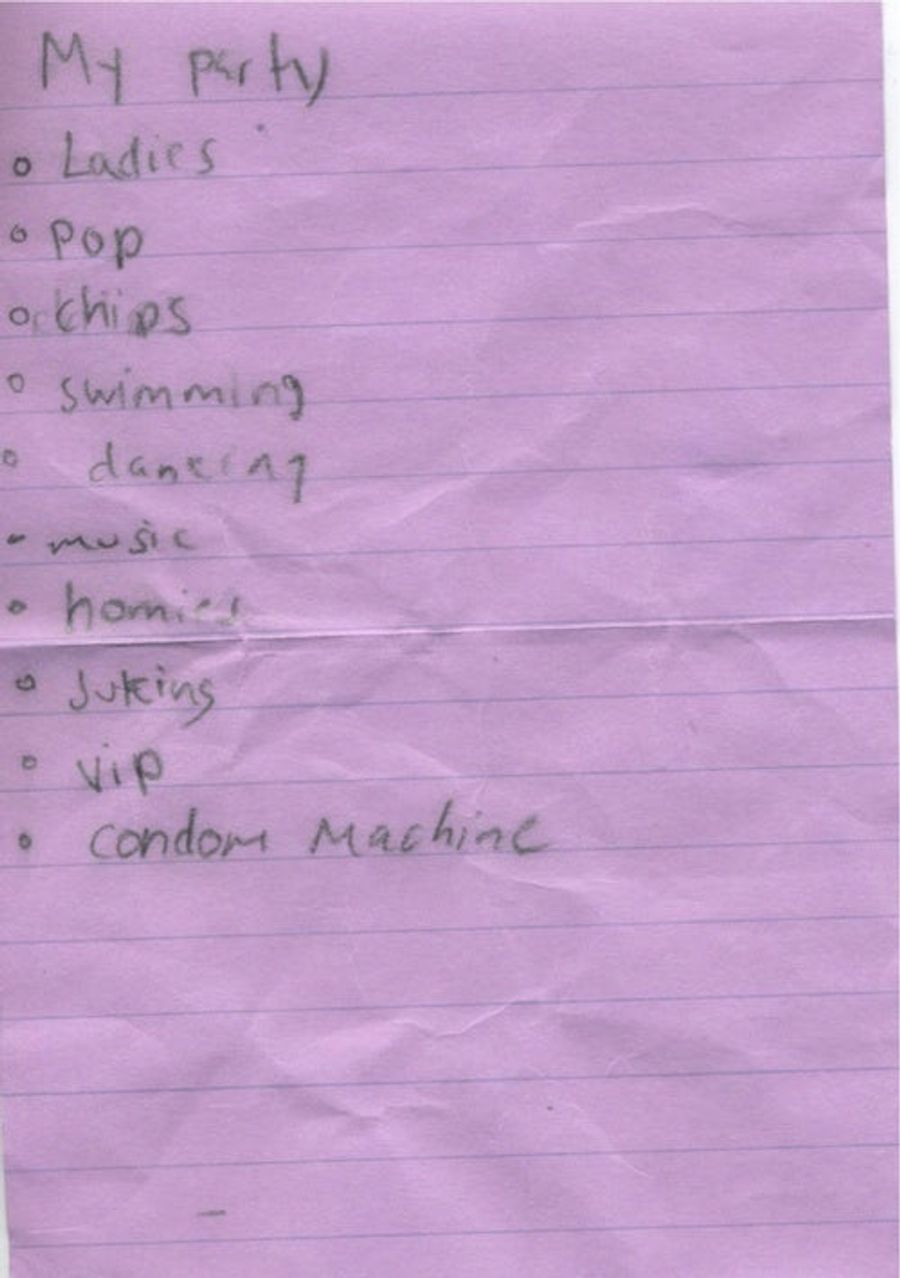 My party
• Ladies
• Pop
• Chips
• swimming
• dancing
• music
• homies
• Juking
• vip
• Condom Machine